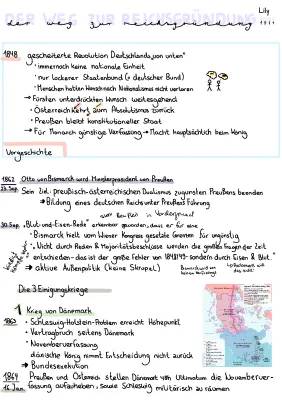 Lily
DER WEG ZUR REICHSGRÜNDUNG
der weg zur reichsgründung
1848 gescheiterte Revolution Deutschlands "von unten"
• immernoch keine nationale Einheit
• nur lockerer Staatenbund (& deutscher Bund)
• Menschen hatten Wunsch nach Nationalismus nicht verloren
→ Fürsten unterdrückten Wunsch weitesgehend
• Österreich kehrt zum Absolutismus zurück
• Preußen bleibt konstitutioneller Staat
→ für Monarch günstige Verfassung → Macht hauptsächlich beim König
Vorgeschichte
1862 Otto von Bismarck wird Ministerpräsident von Preußen
23. Sep. Sein Ziel: preußisch-österreichischen Dualismus zugunsten Preußens beenden
→ Bildung eines deutschen Reichs unter Preußens Führung
30. Sep. „Blut-und-Eisen-Rede"
• Bismarck hielt vom Wiener Kongress gesetzte Grenzen für ungünstig
• „Nicht durch Reden & Majoritätsbeschlüsse werden die großen Fragen der Zeit
entschieden - das ist der große Fehler von 1848/49 - sondern durch Eisen & Blut."
→ aktive Außenpolitik (keine Skrupel)
Die 3 Einigungskriege
1 Krieg von Dänemark
1863 • Schleswig-Holstein-Problem erreicht Höhepunkt
• Vertragbruch seitens Dänemark
• Novemberverfassung
dänische König nimmt Entscheidung nicht zurück
→ Bundesexekution
1864 Preußen und Österreich stellen Dänemark Ultimatum die Novemberver-
16. Jan. fassung aufzuheben, sowie Schleswig militärisch zu räumen